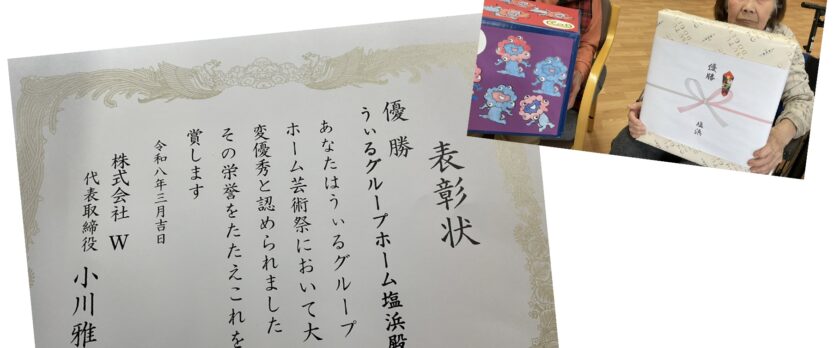 表彰状
優勝
うぃるグループホーム塩浜殿
あなたはうぃるグループ
ホーム芸術祭において大
変優秀と認められました
その栄誉をたたえこれを
賞します
令和八年三月吉日
株式会社 W
代表取締役 小川雅
優勝
塩浜